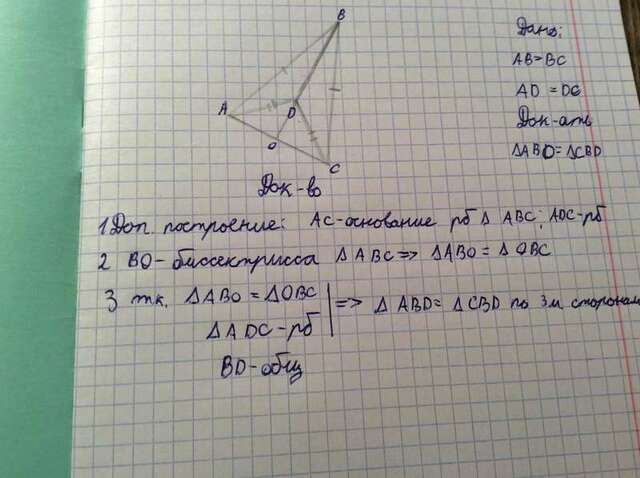 B
A
D
O
C
Дано:
AB=BC
AD=DC
Док-ать
ΔABD=ΔCBD
Док-во
1 Доп. построение: AC-основание рб Δ ABC; ADC-рб
2 BO-биссектрисса ΔABC=> ΔABO=ΔOBC
3 тк. ΔABO=ΔOBC
ΔADC-рб
BD-общ
=> ΔABD=ΔCBD по 3м сторонам